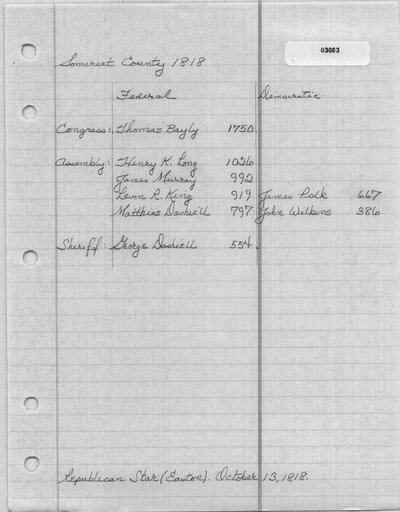 03083
Somerset County 1818
Federal Democratic
Congress: Thomas Bayly 1750
Assembly: Henry K. Long 1026
James Murray 992
Levin R. King 919 James Polk 667
Matthias Dashiell 797 John Wilkins 386
Sheriff: George Dashiell 554
Republican Star (Easton). October 13, 1818.